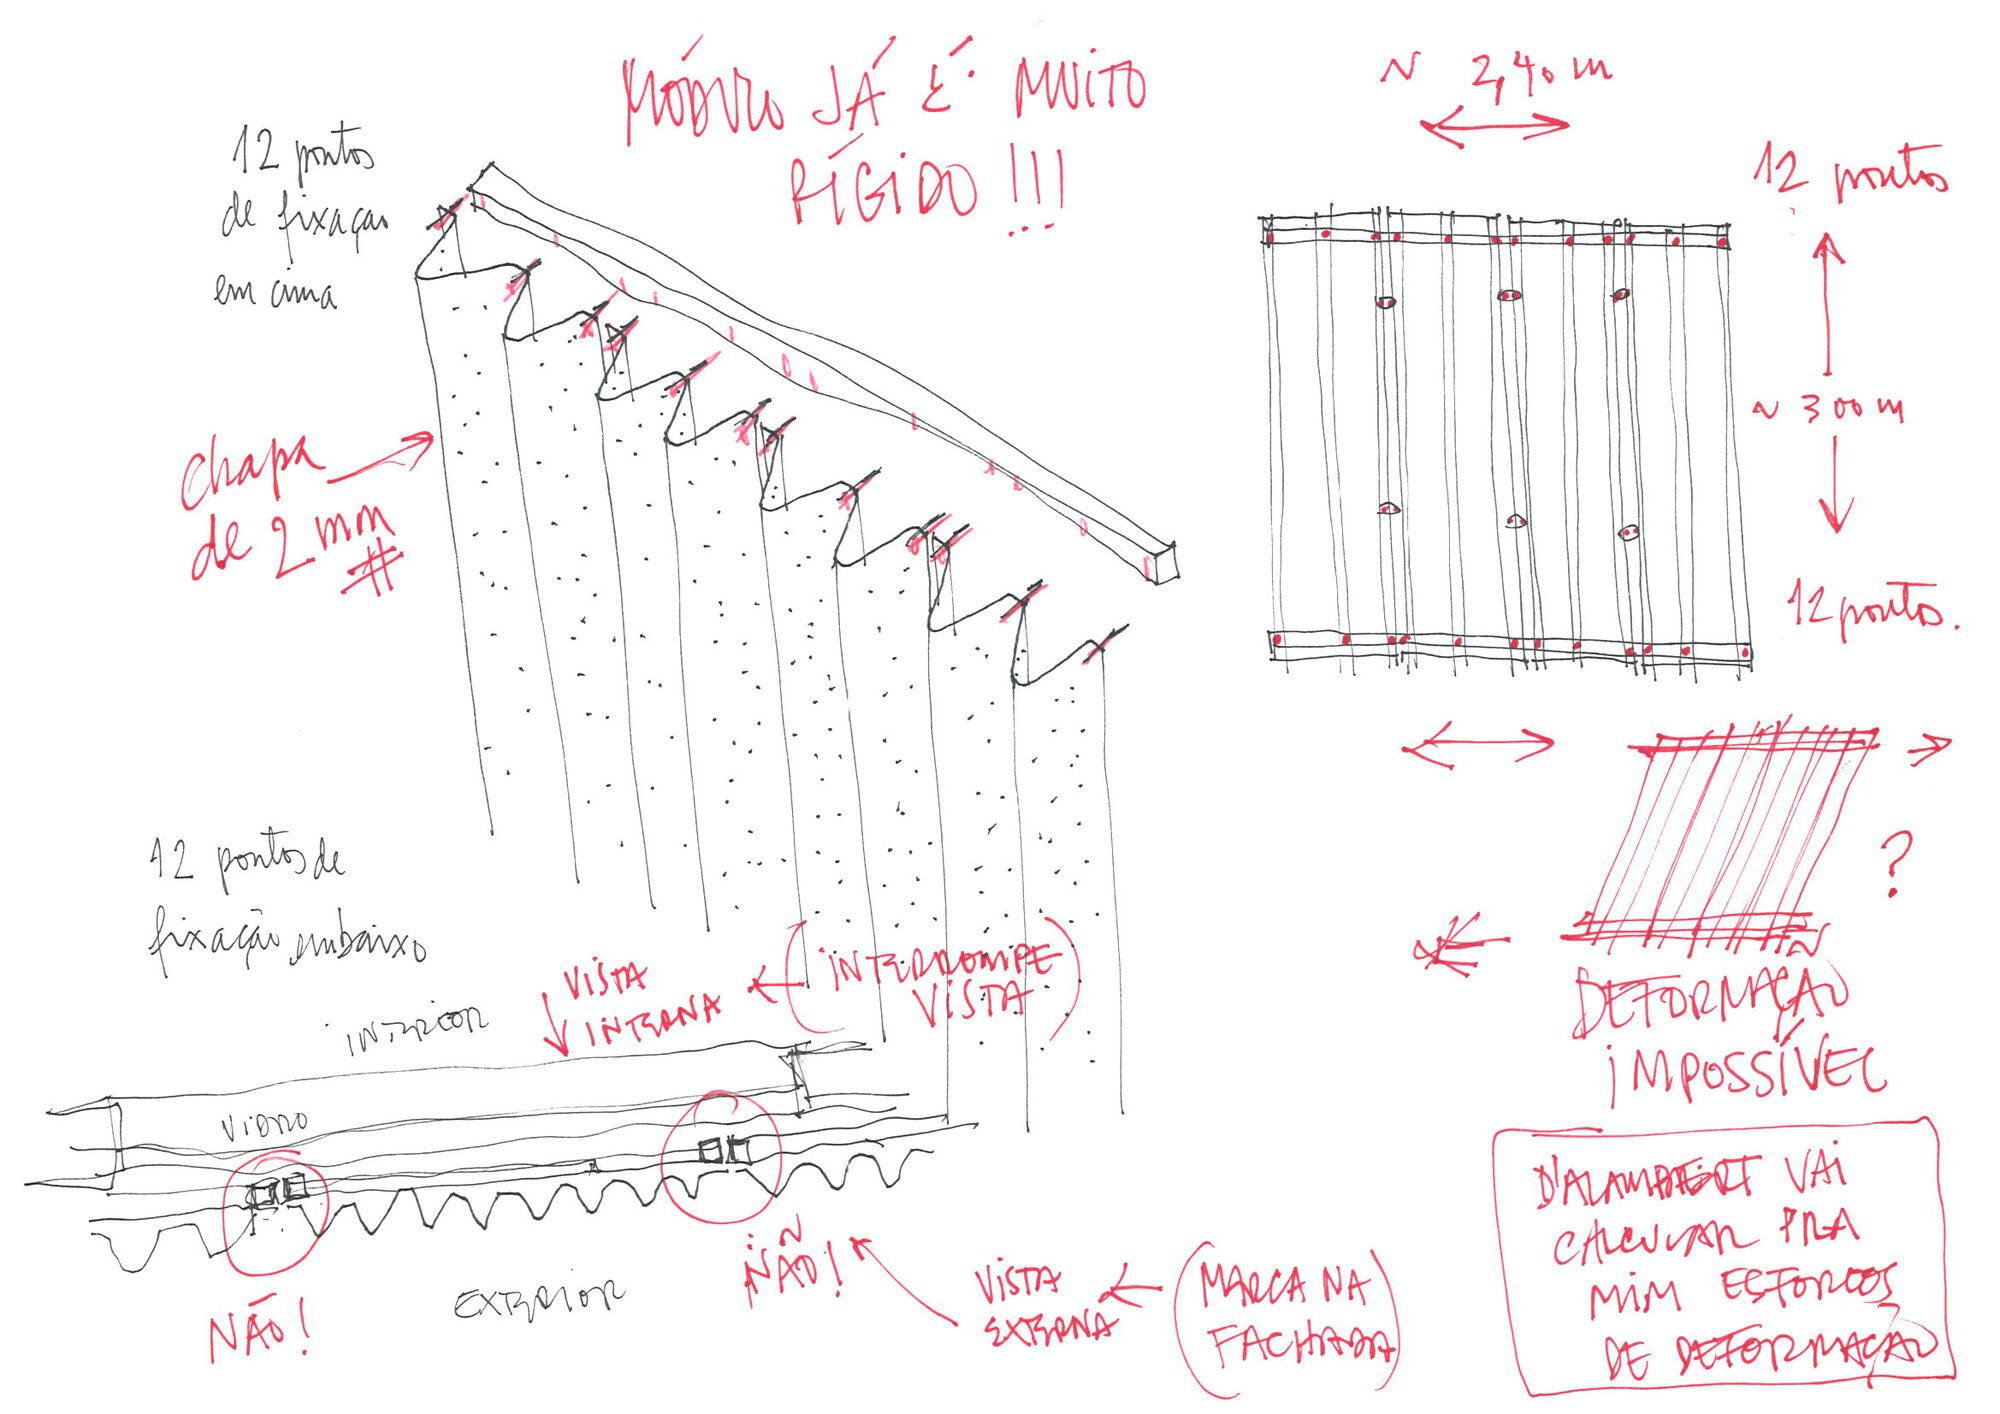 MÓDULO JÁ É MUITO
RÍGIDO!!!
12 pontos
de fixação
em cima
chapa
de 2 mm
#
12 pontos de
fixação embaixo
INTERIOR
VISTA
INTERNA
(INTERROMPE
VISTA)
VIDRO
NÃO!
EXTERIOR
NÃO!
VISTA
EXTERNA
(MARCA NA
FACHADA)
~ 2,40 m
12 pontos
~ 300 m
12 pontos.
?
DEFORMAÇÃO
IMPOSSÍVEL
D'ALAMBERT VAI
CALCULAR PRA
MIM ESFORÇOS
DE DEFORMAÇÃO